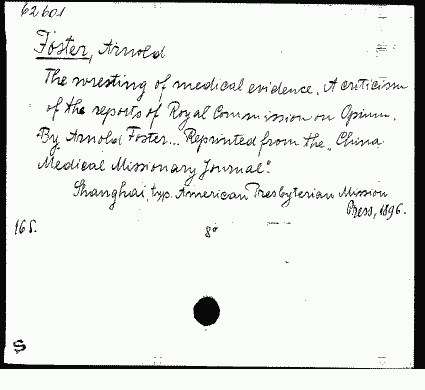 62601
Foster, Arnold
The wresting of medical evidence. A criticism
of the reports of Royal Commission on Opium.
By Arnold Foster... Reprinted from the „China
Medical Missionary Journal".
Shanghai, typ. American Presbyterian Mission
Press, 1896.
16 S. 8°
S